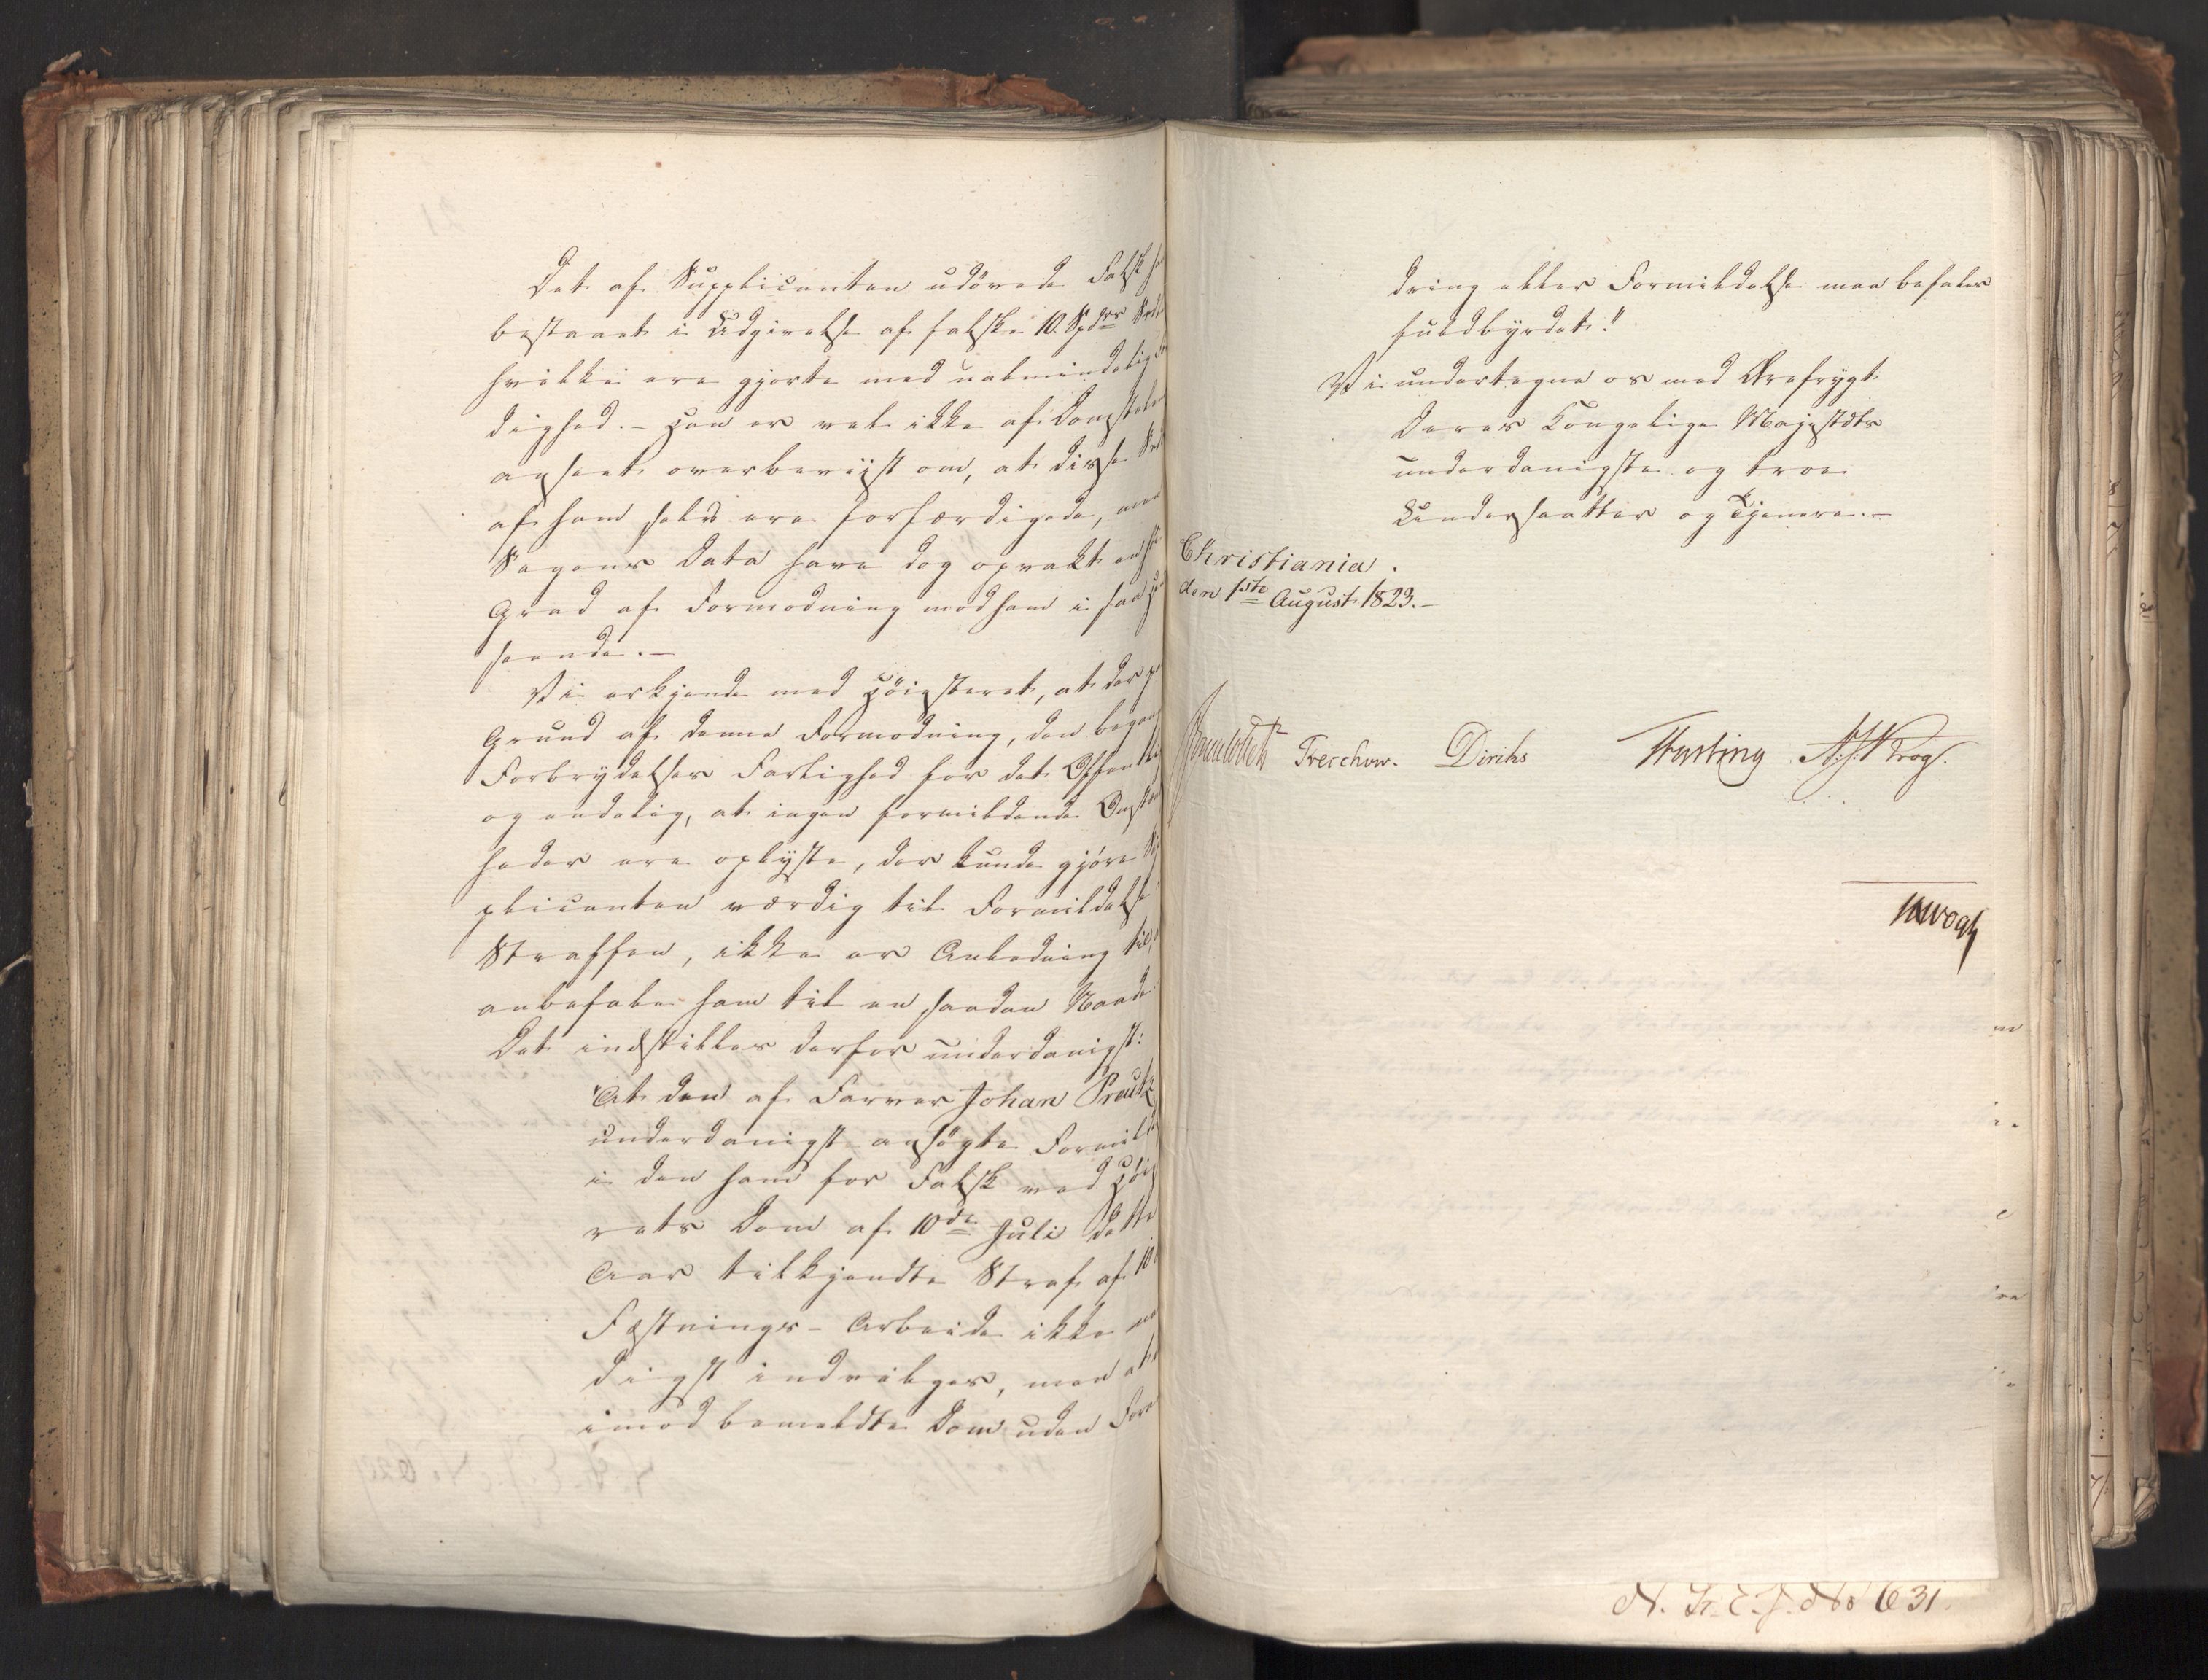 Det af Supplicanten udövede Falsk
bestaaer i Udgivelse af falske 10 Spdlrs
hvilke ere gjorte med ualmindelig
dighed. – Han er vel ikke af Domstolen
anseet overbeviist om, at disse
af ham selv ere forfærdigede, men
Sagens Data have dog opvakt en
Grad af Formodning mod ham i saa
seende. –
Vi erkjende med Höiesteret, at der
Grund af denne Formodning, den began
Forbrydelses Farlighed for det Offentl
og endelig, at ingen formildende Omstæn
heder ere oplyste, der kunde gjöre
plicanten værdig til Formildelse
Straffen, ikke er Anledning til,
anbefale ham til en saadan Naade.
Det indstilles derfor underdanigst:
"At den af Farver Johan Preutz
underdanigst ansögte Formild
i den ham for Falsk ved Höie
rets Dom af 10de Juli dette
Aar tilkjendte Straf af 10
Fæstnings-Arbeide ikke naa
digst indvilges, men at
imod bemeldte Dom uden Foran
dring eller Formildelse maa befales
fuldbyrdet."
Vi undertegne os med Ærefrygt
Deres Kongelige Majestæts
underdanigste og troe
Undersaatter og Tjenere. –
Christiania.
den 1ste August 1823. –
Treschow. Diriks
N. J. Krog.
JHVogt
N. Fr. E. J. No 631.